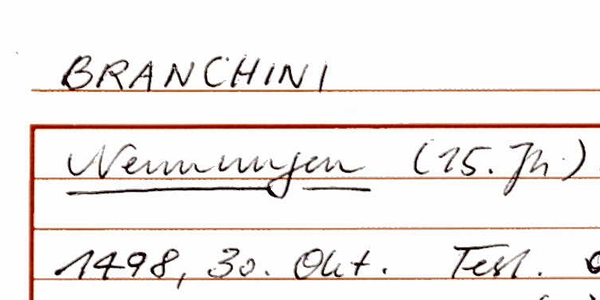 BRANCHINI
Nennungen (15. Jh.)
1498, 30. Okt. Test.